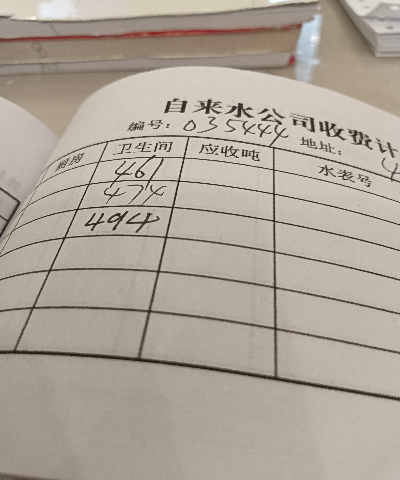 自来水公司收费计
编号：035444 地址：
厨房 卫生间 应收吨 水表号
461
474
494